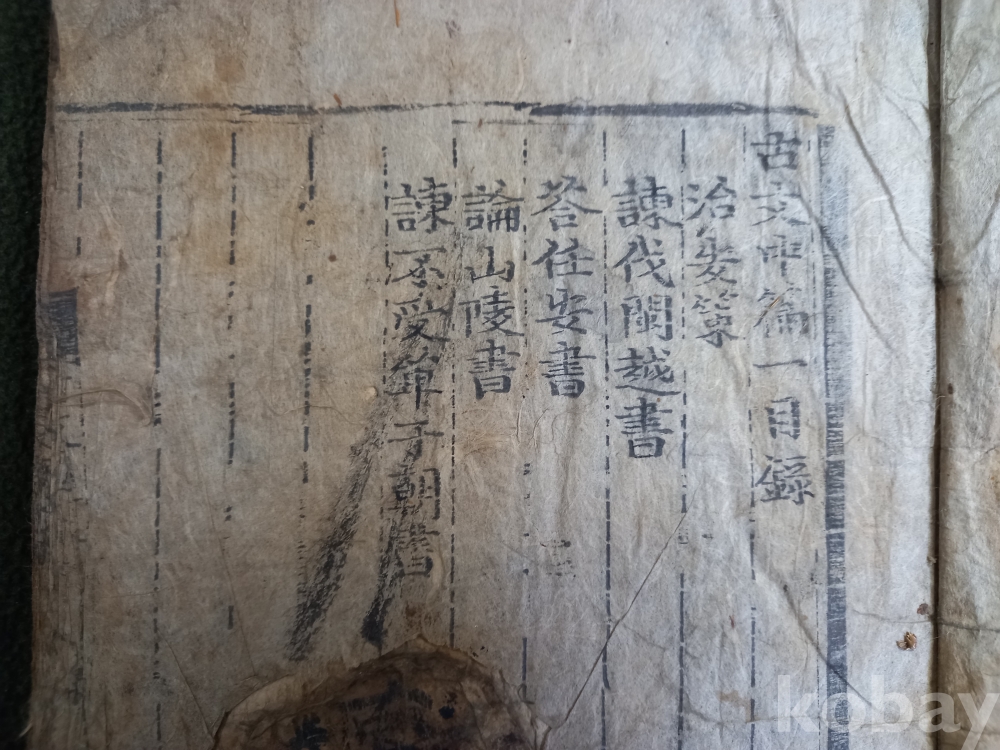 古文中篇一目錄
治安策
諫伐閩越書
荅任安書
論山陵書
諫不受單于朝書
kobay